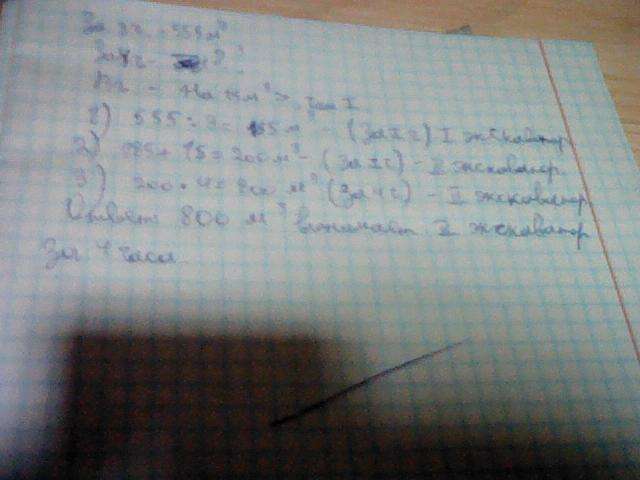 За 3ч - 555 м³
За 4ч - ?
На 15 м³ > чем I
1) 555 : 3 = 185 м³ - (За 1 ч) I экскаватор
2) 185 + 15 = 200 м³ - (За 1 ч) - II экскаватор
3) 200 · 4 = 800 м³ (За 4 ч) - II экскаватор
Ответ 800 м³ вынимает II экскаватор
За 4 часа